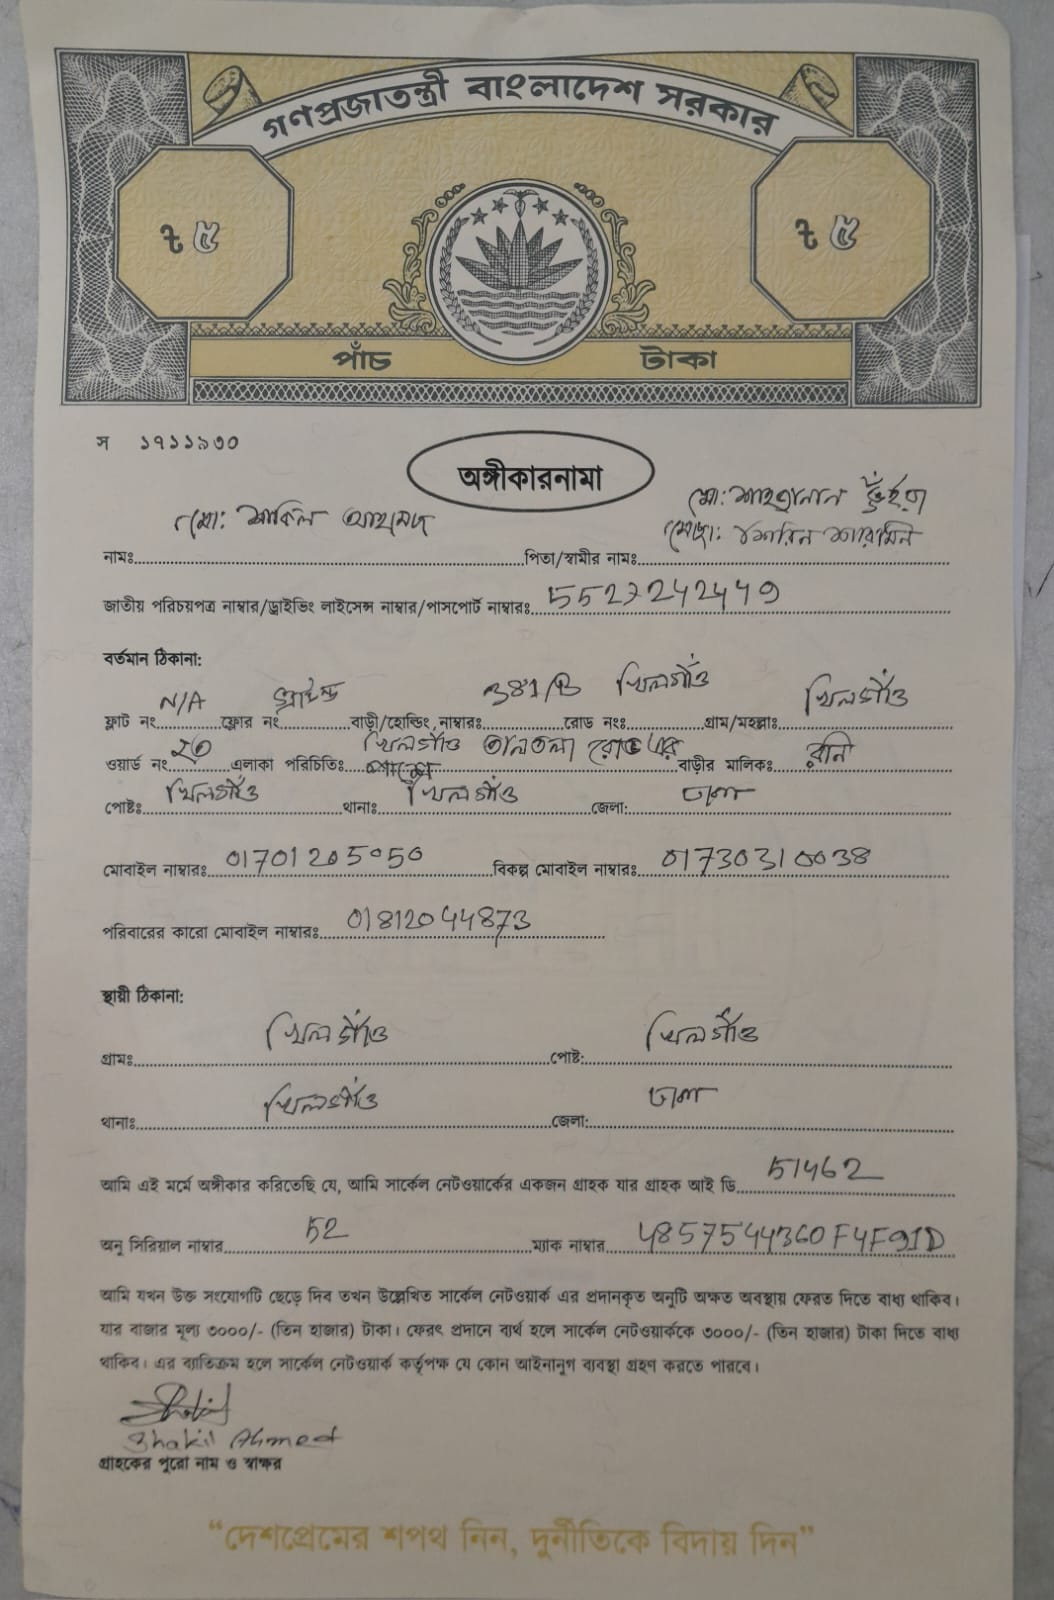 গণপ্রজাতন্ত্রী বাংলাদেশ সরকার
৳ ৫
৳ ৫
পাঁচ টাকা
স ১৭১১৯৩০
অঙ্গীকারনামা
নামঃ মো: শাকিল আহমেদ পিতা/স্বামীর নামঃ মো: শাহজালাল ভূঁইয়া
মোছা: শারমিন
জাতীয় পরিচয়পত্র নাম্বার/ড্রাইভিং লাইসেন্স নাম্বার/পাসপোর্ট নাম্বারঃ 5527242449
বর্তমান ঠিকানা:
ফ্লাট নং N/A ফ্লোর নং বাড়ী/হোল্ডিং নাম্বারঃ 381/B রোড নংঃ খিলগাঁও গ্রাম/মহল্লাঃ খিলগাঁও
ওয়ার্ড নং এলাকা পরিচিতিঃ খিলগাঁও তালতলা রোড এর পাশে বাড়ীর মালিকঃ রনি
পোষ্টঃ খিলগাঁও থানাঃ খিলগাঁও জেলা: ঢাকা
মোবাইল নাম্বারঃ 01701205050 বিকল্প মোবাইল নাম্বারঃ 01730310038
পরিবারের কারো মোবাইল নাম্বারঃ 01812044873
স্থায়ী ঠিকানা:
গ্রামঃ খিলগাঁও পোষ্ট: খিলগাঁও
থানাঃ খিলগাঁও জেলা: ঢাকা
আমি এই মর্মে অঙ্গীকার করিতেছি যে, আমি সার্কেল নেটওয়ার্কের একজন গ্রাহক যার গ্রাহক আই ডি 51462
অনু সিরিয়াল নাম্বার 52 ম্যাক নাম্বার 4857544360F4F91D
আমি যখন উক্ত সংযোগটি ছেড়ে দিব তখন উল্লেখিত সার্কেল নেটওয়ার্ক এর প্রদানকৃত অনুটি অক্ষত অবস্থায় ফেরত দিতে বাধ্য থাকিব।
যার বাজার মূল্য ৩০০০/- (তিন হাজার) টাকা। ফেরৎ প্রদানে ব্যর্থ হলে সার্কেল নেটওয়ার্ককে ৩০০০/- (তিন হাজার) টাকা দিতে বাধ্য
থাকিব। এর ব্যতিক্রম হলে সার্কেল নেটওয়ার্ক কর্তৃপক্ষ যে কোন আইনানুগ ব্যবস্থা গ্রহণ করতে পারবে।
Shakil Ahmed
গ্রাহকের পুরো নাম ও স্বাক্ষর
“দেশপ্রেমের শপথ নিন, দুর্নীতিকে বিদায় দিন”